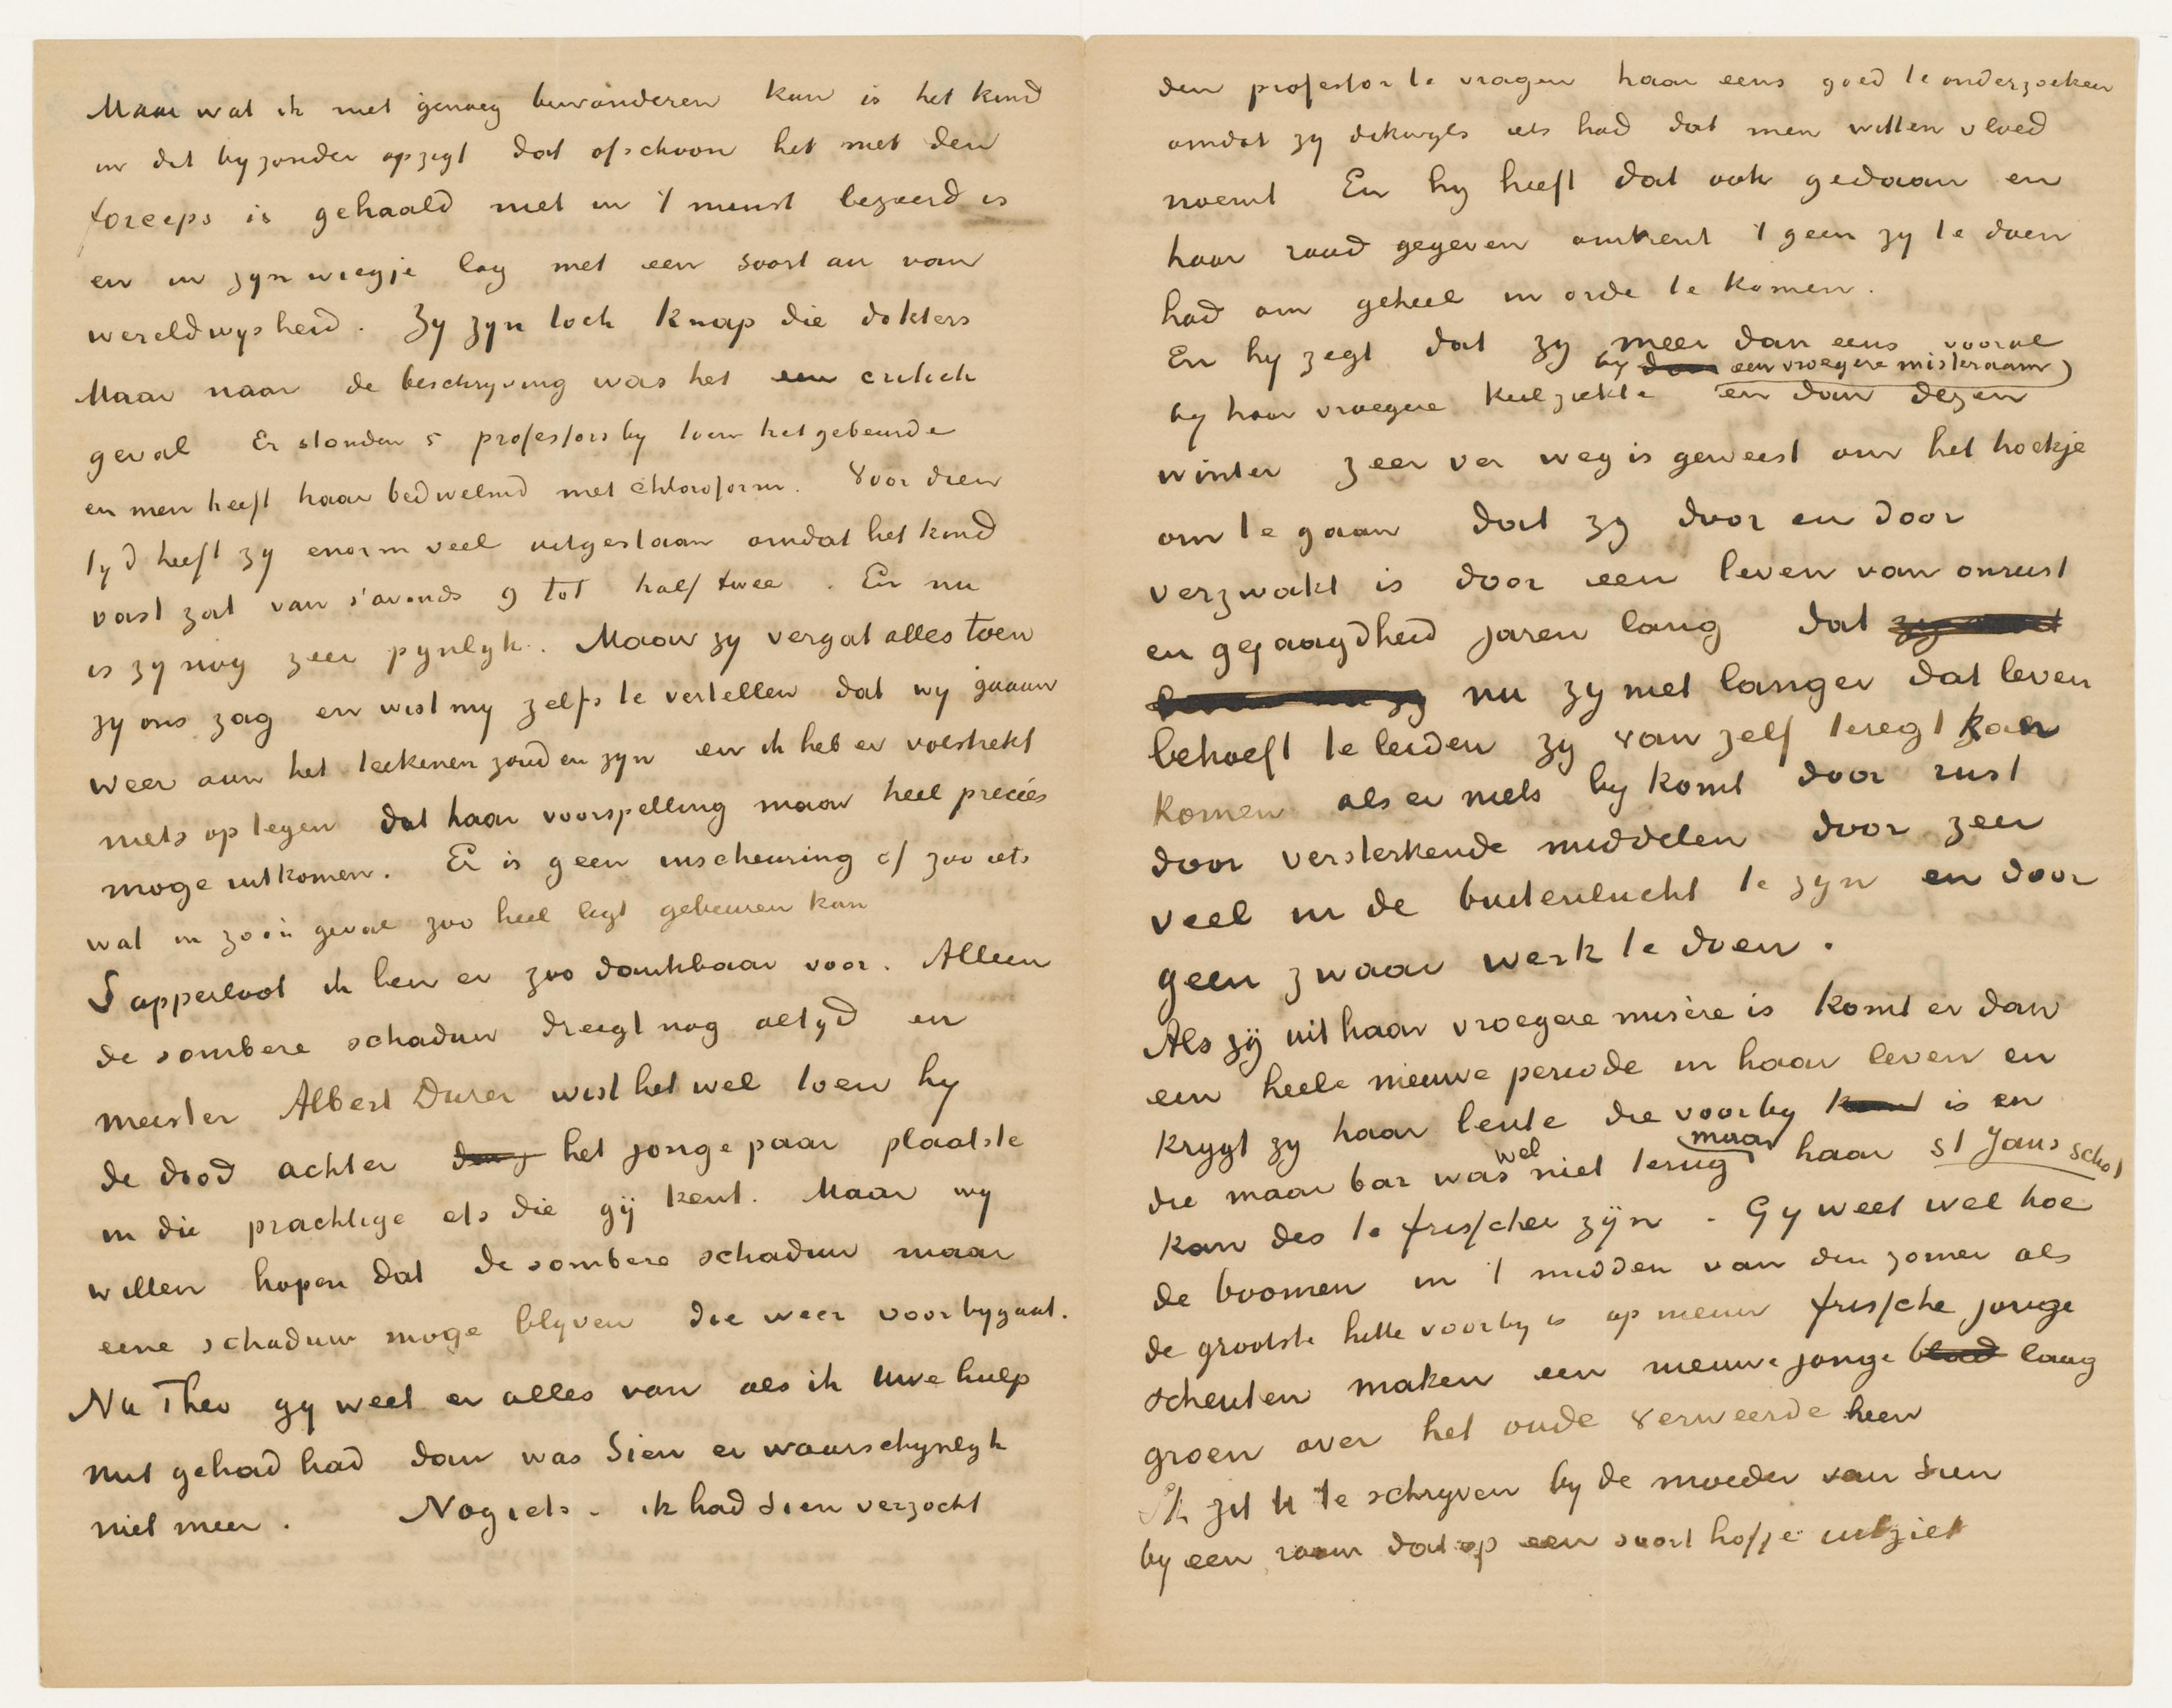 Maar wat ik niet genoeg bewonderen kan is het kind
in dit byzonder opzigt dat ofschoon het met den
forceps is gehaald niet in 't minst bezeerd is
en in zyn wiegje lag met een soort air van
wereldwysheid. Zy zyn toch knap die dokters
Maar naar de beschryving was het een critiek
geval Er stonden 5 professors by toen het gebeurde
en men heeft haar bedwelmd met chloroform. Voor dien
tyd heeft zy enorm veel uitgestaan omdat het kind
vast zat van s'avonds 9 tot half twee. En nu
is zy nog zeer pynlyk. Maar zy vergat alles toen
zy ons zag en wist my zelfs te vertellen dat wy gaauw
weer aan het teekenen zouden zyn en ik heb er volstrekt
niets op tegen dat haar voorspelling maar heel precies
moge uitkomen. Er is geen inscheuring of zoo iets
wat in zoo'n geval zoo heel ligt gebeuren kan
Sapperloot ik ben er zoo dankbaar voor. Alleen
de sombere schaduw dreigt nog altyd en
meester Albert Durer wist het wel toen hy
de dood achter het jonge paar plaatste
in die prachtige ets die gij kent. Maar wy
willen hopen dat de sombere schaduw maar
eene schaduw moge blyven die weer voorbygaat.
Nu Theo gy weet er alles van als ik uwe hulp
niet gehad had dan was Sien er waarschynlyk
niet meer. Nog iets. ik had Sien verzocht
den professor te vragen haar eens goed te onderzoeken
omdat zy dikwyls iets had dat men witten vloed
noemt En hy heeft dat ook gedaan en
haar raad gegeven omtrent 't geen zy te doen
had om geheel in orde te komen.
En hy zegt dat zy meer dan eens vooral
by door een vroegere miskraam
by haar vroegere keelziekte en dan dezen
winter zeer ver weg is geweest om het hoekje
om te gaan dat zy door en door
verzwakt is door een leven van onrust
en gejaagdheid jaren lang dat
nu zy niet langer dat leven
behoeft te leiden zy van zelf teregt kan
komen als er niets by komt door rust
door versterkende middelen door zeer
veel in de buitenlucht te zyn en door
geen zwaar werk te doen.
Als zij uit haar vroegere misère is komt er dan
een heele nieuwe periode in haar leven en
krygt zy haar lente die voorby komt is en
die maar bar was wel niet terug maar haar st Jans schot
kan des te frisscher zijn. Gy weet wel hoe
de boomen in 't midden van den zomer als
de grootste hitte voorby is op nieuw frissche jonge
scheuten maken een nieuwe jonge blad laag
groen over het oude verweerde heen
Ik zit U te schryven by de moeder van Sien
by een raam dat op een soort hofje uitziet